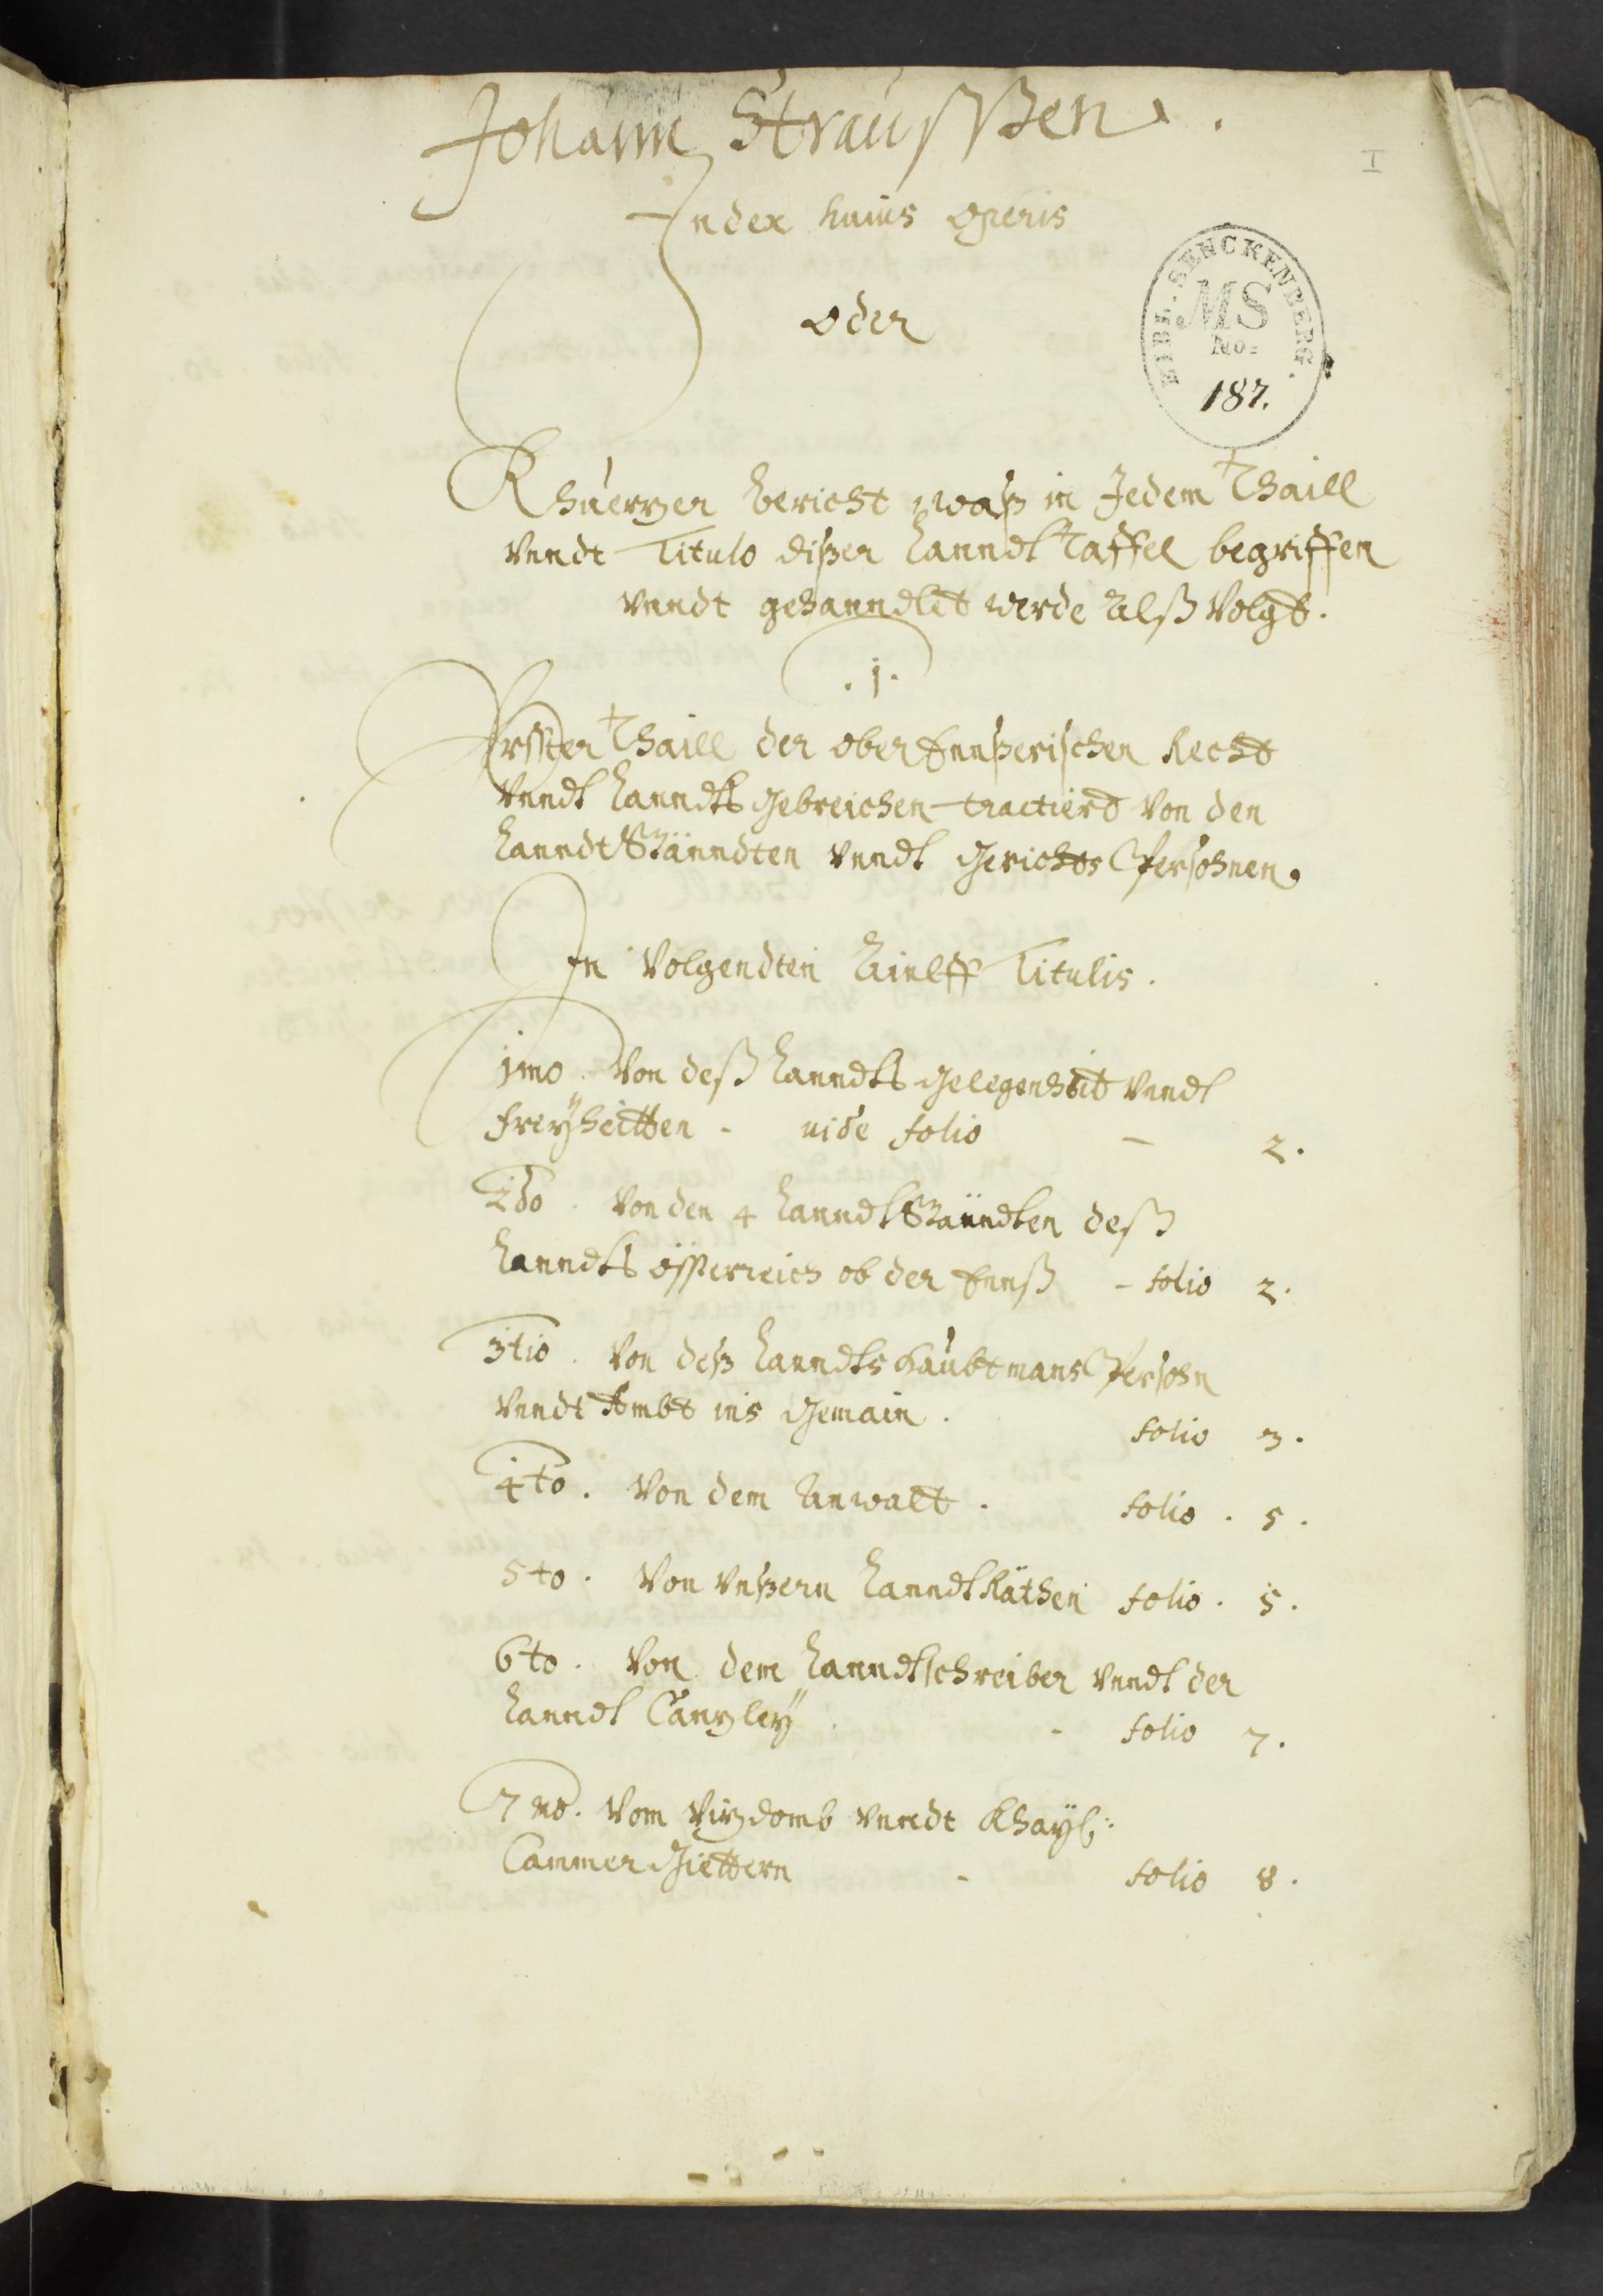 Johann Straussen.
I
Index huius operis
oder
BIBL. SENCKENBERG.
MS
No:
187.
Khuerzer bericht waß in Jedem Thaill
vnndt Titulo dißer Lanndt Taffel begriffen
vnndt gehanndlet werde Alß Volgt.
.1.
Erster Thaill der ober Ennßerischen Recht
vnndt Lanndts gebreichen tractiert von den
Lanndt Stänndten vnndt Gerichts Persohnen.
In Volgendten Ainlff Titulis.
1mo. Von deß Lanndts gelegenheit vnndt
freyheitten - vide folio - 2.
2do. Von den 4 Lanndt Stänndten deß
Lanndts össterreich ob der Ennß - folio 2.
3tio. Von deß Lanndts Haubtmans Persohn
vnndt Ambt ins gemain. folio 3.
4to. Von dem Anwalt. folio. 5.
5to. Von vnßern Lanndt Räthen folio. 5.
6to. Von dem Lanndtschreiber vnndt der
Lanndt Canzley. - folio 7.
7mo. Vom Vizdomb vnndt Khayß:
Cammer Giettern - folio 8.